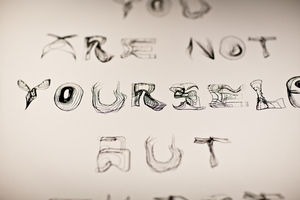 YOU
ARE NOT
YOURSELF
BUT